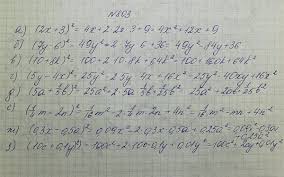 №803
а) (2x+3)² = 4x+2·2x·3+9 = 4x²+12x+9
б) (7y-6)² = 49y²-2·7y·6+36 = 49y²-14y+36
в) (10-8k)² = 100-2·10·8k+64k² = 100-160k+64k²
г) (5y-4x)² = 25y²-2·5y·4x+16x² = 25y²-40xy+16x²
д) (5a+ b)² = 25a²+2·5a· b+ b² = 25a²+2ab+ b²
е) ( m-2n)² = m²-2· m·2n+4n² = m²-mn+4n²
ж) (0,3x-0,5a)² = 0,09x²-2·0,3x·0,5a+0,25a² = 0,09x²-0,3xa
+0,25a²
з) (10c+0,1y)² = 100c²+2·10c·0,1y+0,01y² = 100c²+2cy+0,01y²